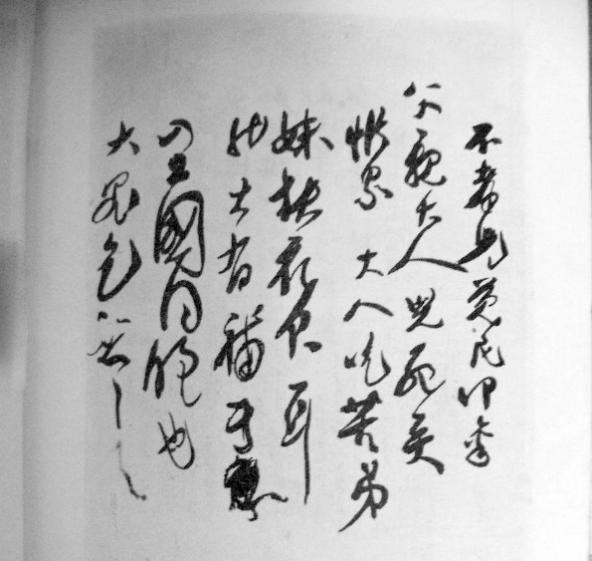 不孝兒覺民叩稟
父親大人兒死矣
惟累大人吃苦弟
妹缺衣食耳
然大有補于
全國同胞也
大罪乞恕之